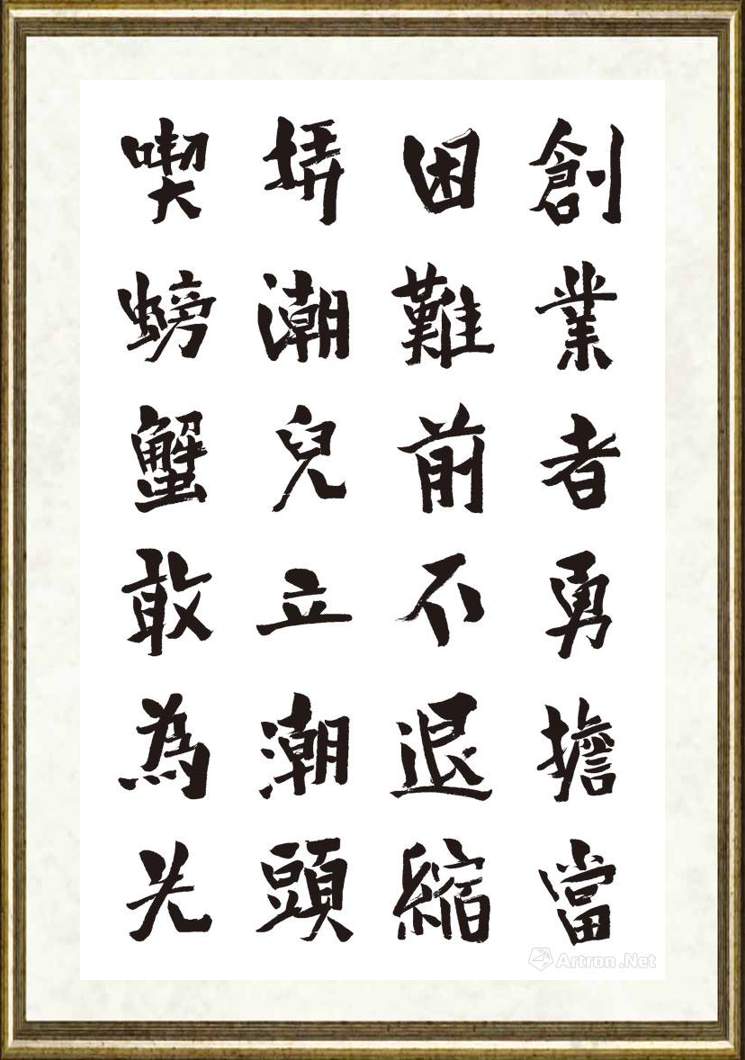 創業者勇擔當
困難前不退縮
搒潮兒立潮頭
喫螃蟹敢為先
Artron.Net